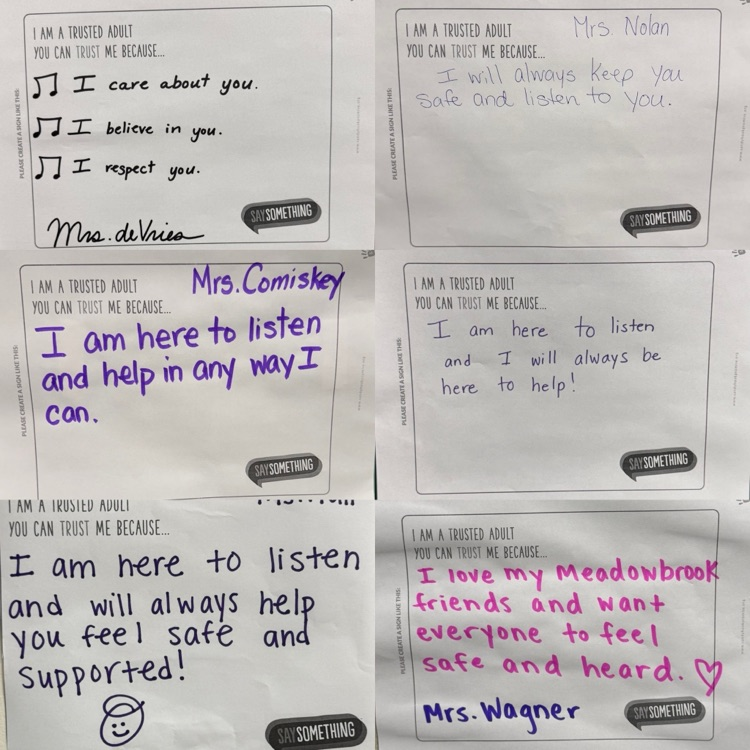 I AM A TRUSTED ADULT
YOU CAN TRUST ME BECAUSE...
I care about you.
I believe in you.
I respect you.
Mrs. deVries
SAYSOMETHING
PLEASE CREATE A SIGN LIKE THIS:
I AM A TRUSTED ADULT
YOU CAN TRUST ME BECAUSE...
Mrs. Nolan
I will always keep you
safe and listen to you.
SAYSOMETHING
PLEASE CREATE A SIGN LIKE THIS:
I AM A TRUSTED ADULT
YOU CAN TRUST ME BECAUSE...
Mrs. Comiskey
I am here to listen
and help in any way I
can.
SAYSOMETHING
PLEASE CREATE A SIGN LIKE THIS:
I AM A TRUSTED ADULT
YOU CAN TRUST ME BECAUSE...
I am here to listen
and I will always be
here to help!
SAYSOMETHING
PLEASE CREATE A SIGN LIKE THIS:
I AM A TRUSTED ADULT
YOU CAN TRUST ME BECAUSE...
I am here to listen
and will always help
you feel safe and
supported!
SAYSOMETHING
I AM A TRUSTED ADULT
YOU CAN TRUST ME BECAUSE...
I love my Meadowbrook
friends and want
everyone to feel
safe and heard.
Mrs. Wagner
SAYSOMETHING
PLEASE CREATE A SIGN LIKE THIS: